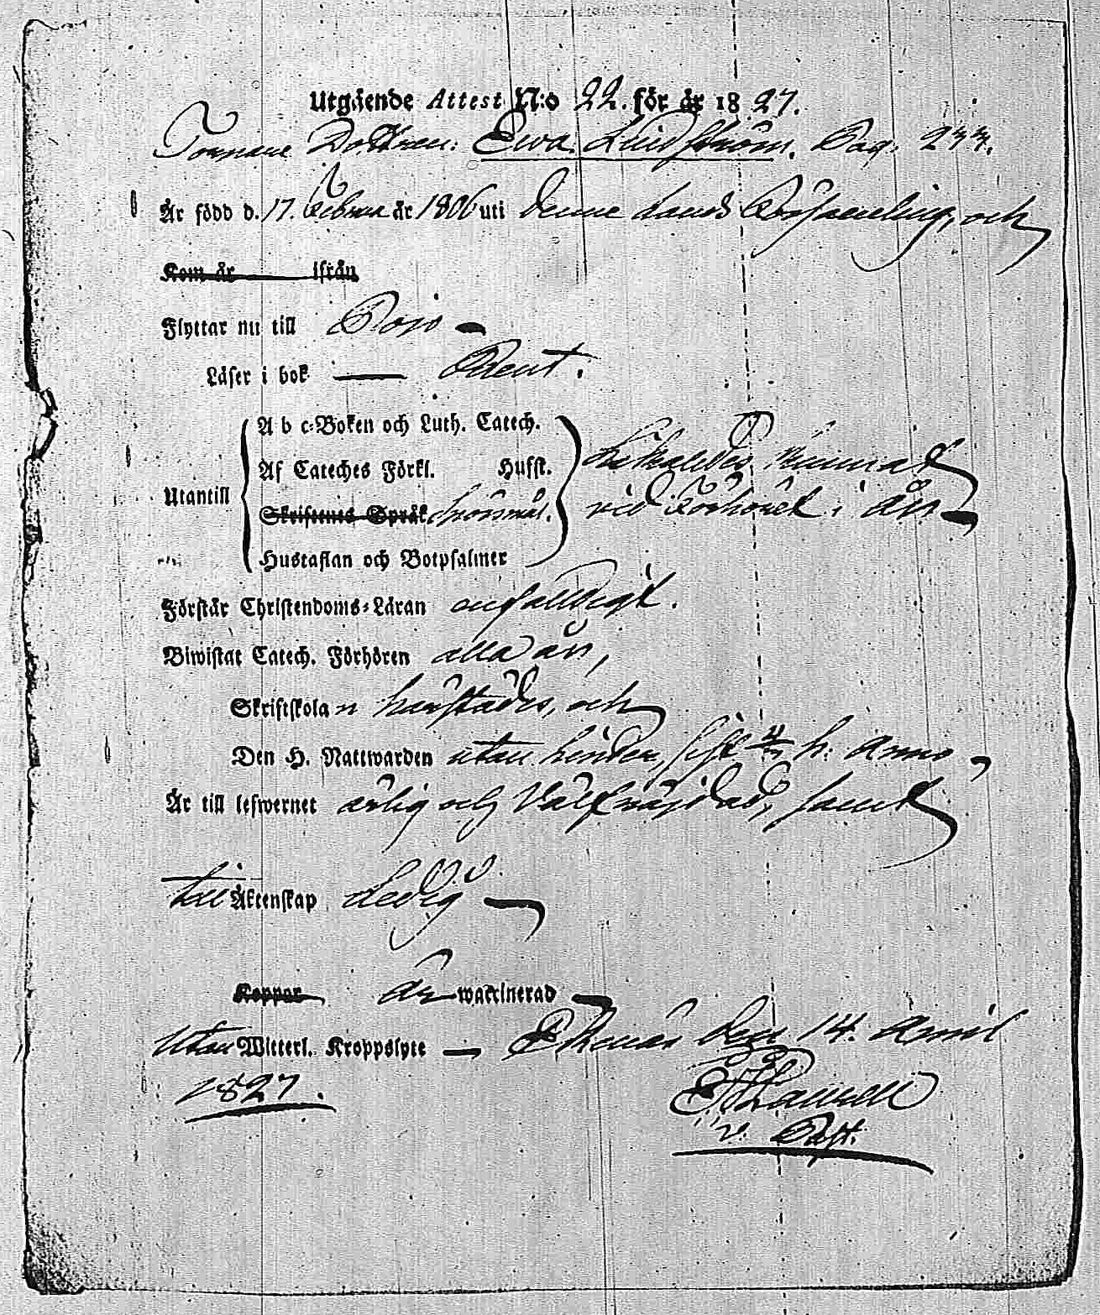 Utgående Attest N:o 22. för år 1827.
Dottren: Ewa Lindström. Pag. 277.
Är född d. 17. Februa år 1806 uti denne Lands Församling, och
Kom år ifrån
Flyttar nu till Pojo
Läser i bok — Rent.
A b c-Boken och Luth. Catech.
Af Cateches Förkl. Husst.
Utantill
Skriftenes Språk Spörsmål.
Hustaflan och Botpsalmer
Likaledes
vid Förhöret i år
Förstår Christendoms-Läran enfaldigt.
Biwistat Catech. Förhören alla år,
Skriftskolan härstädes, och
Den H. Nattwarden utan hinder, sist h: Anno
Är till lefwernet ärlig och Välfräjdad, samt
till Äktenskap Ledig
Koppor är waccinerad
Utan Witterl. Kroppslyte — Ekenäs den 14. April
1827.
v. Past.